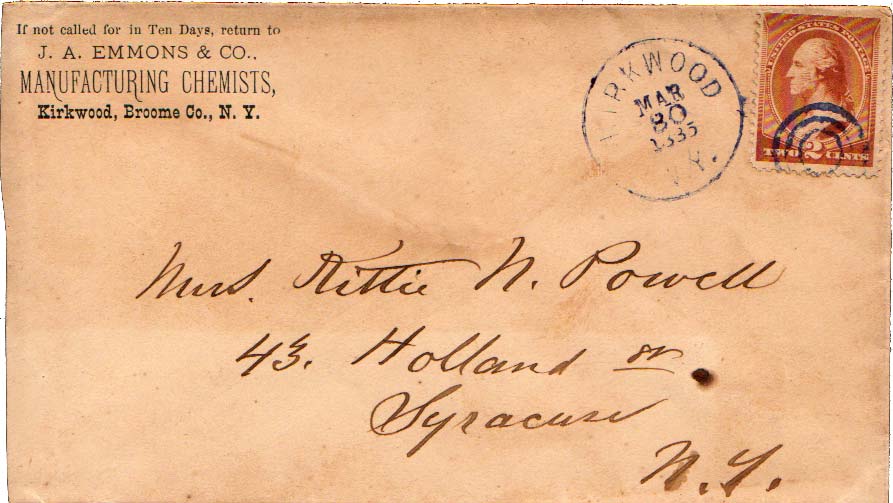 If not called for in Ten Days, return to
J. A. EMMONS & CO.,
MANUFACTURING CHEMISTS,
Kirkwood, Broome Co., N. Y.
KIRKWOOD
MAR
30
1885
N.Y.
UNITED STATES POSTAGE
TWO 2 CENTS
Mrs. Kittie N. Powell
43. Holland St.
Syracuse
N.Y.